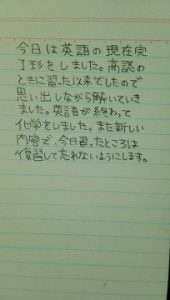 今日は英語の現在完
了形をしました。高認の
ときに習った以来でしたので
思い出しながら解いていき
ました。英語が終わって
化学をしました。また新しい
内容で、今日習ったところは
復習して忘れないようにします。